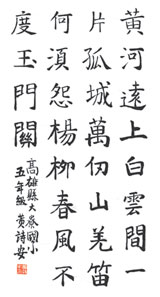 黃河遠上白雲間一
片孤城萬仞山羌笛
何須怨楊柳春風不
度玉門關
高雄縣大寮國小
五年級 黃詩安